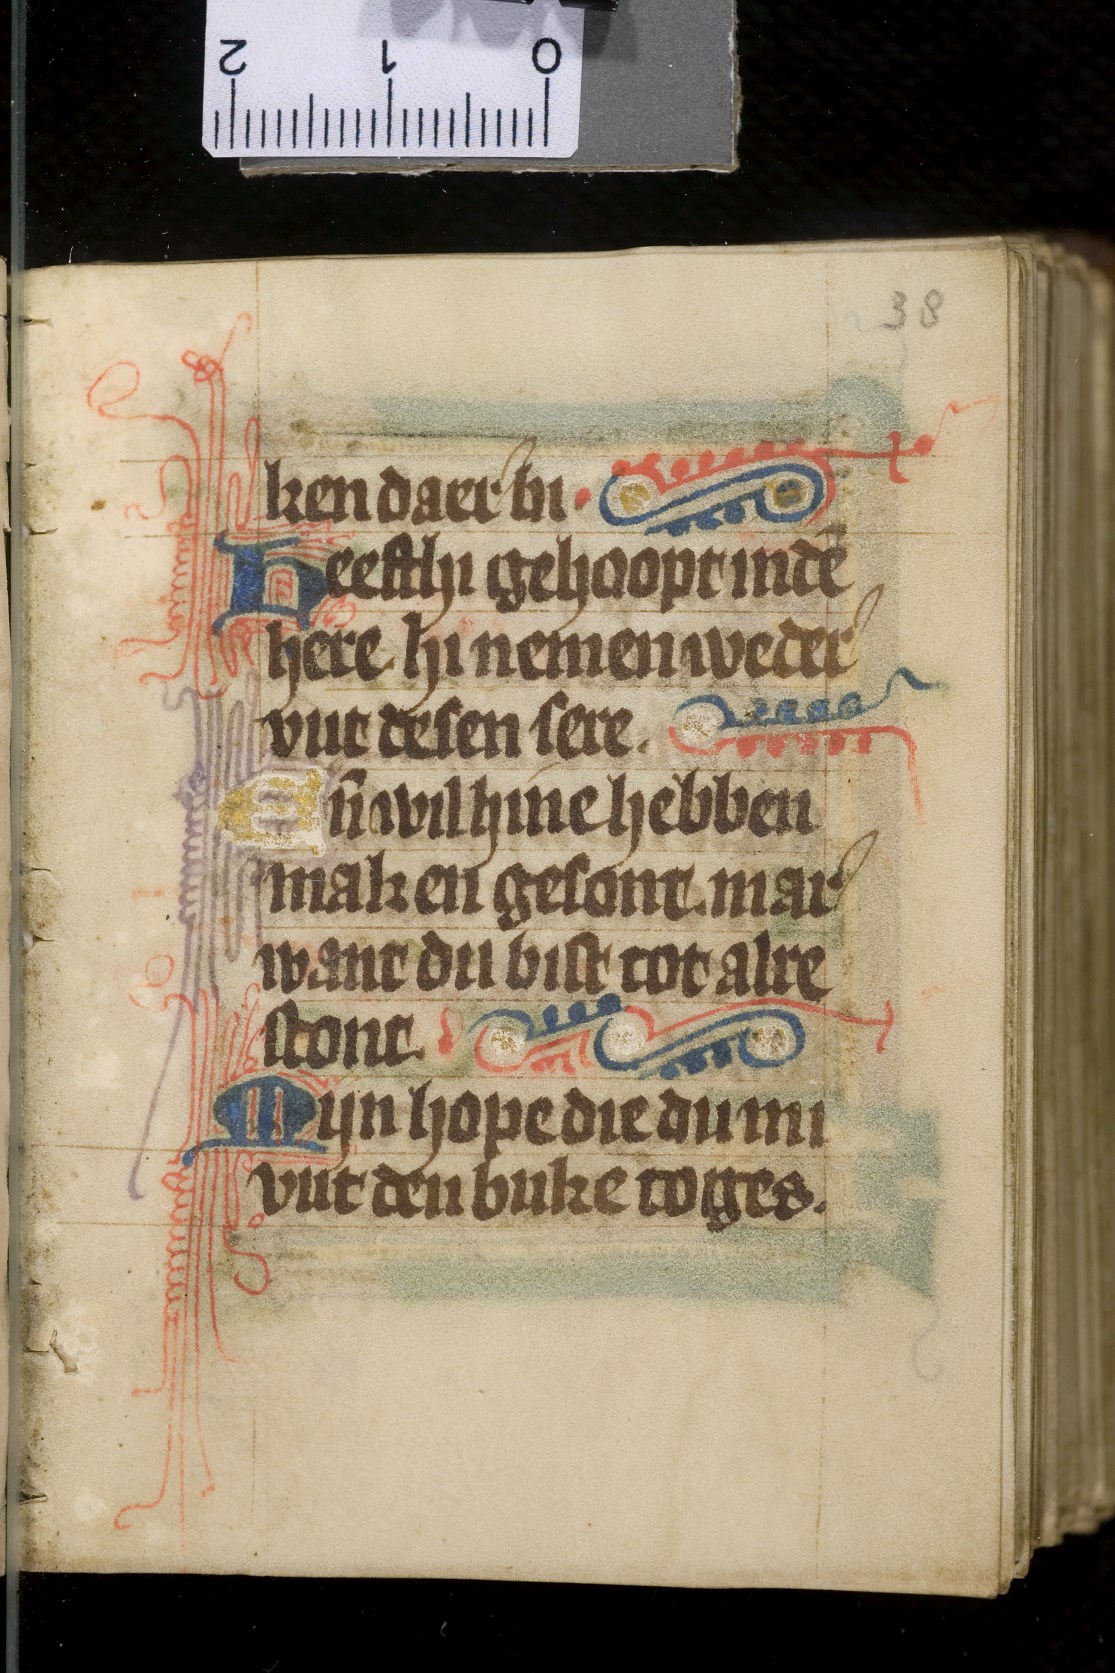 2 1 0
38
ken daer bi.
Heefthi gehoopt in dē
here. hi nemen weder
vut desen sere.
Eñ wil hine hebben
maken gesont. mar
want du bist tot alre
stont.
Mijn hope die du mi
vut den buke toges.